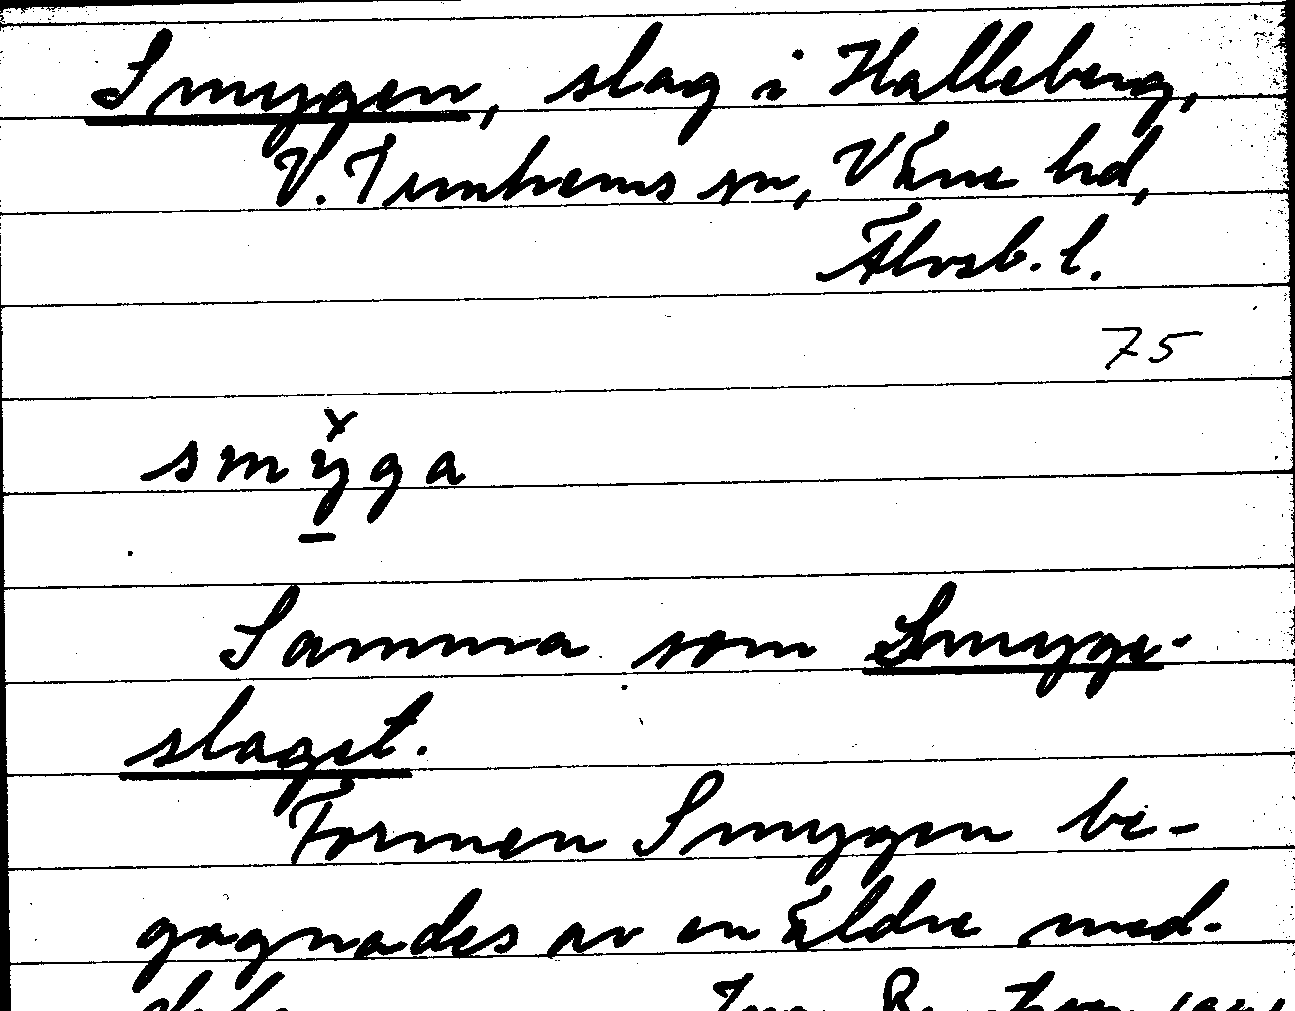 Smygen, slag i Halleberg,
V. Tunhems sn, Väne hd,
Älvsb. l.
75
smy̌ga
Samma som Smyge-
slaget.
Formen Smygen be-
gagnades av en äldre med-